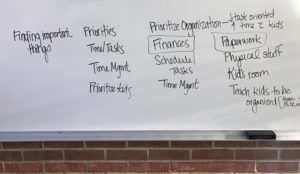 Finding important
things
Priorities
Time/Tasks
Time Mgmt
Prioritize tasks
Prioritize Organization
Finances
Schedule
Tasks
Time Mgmt
task oriented
time kids
Paperwork
Physical stuff
Kid's room
Teach kids to be
organized